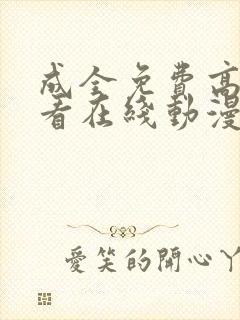 成全免費高
看在綫動漫
愛笑的開心丫